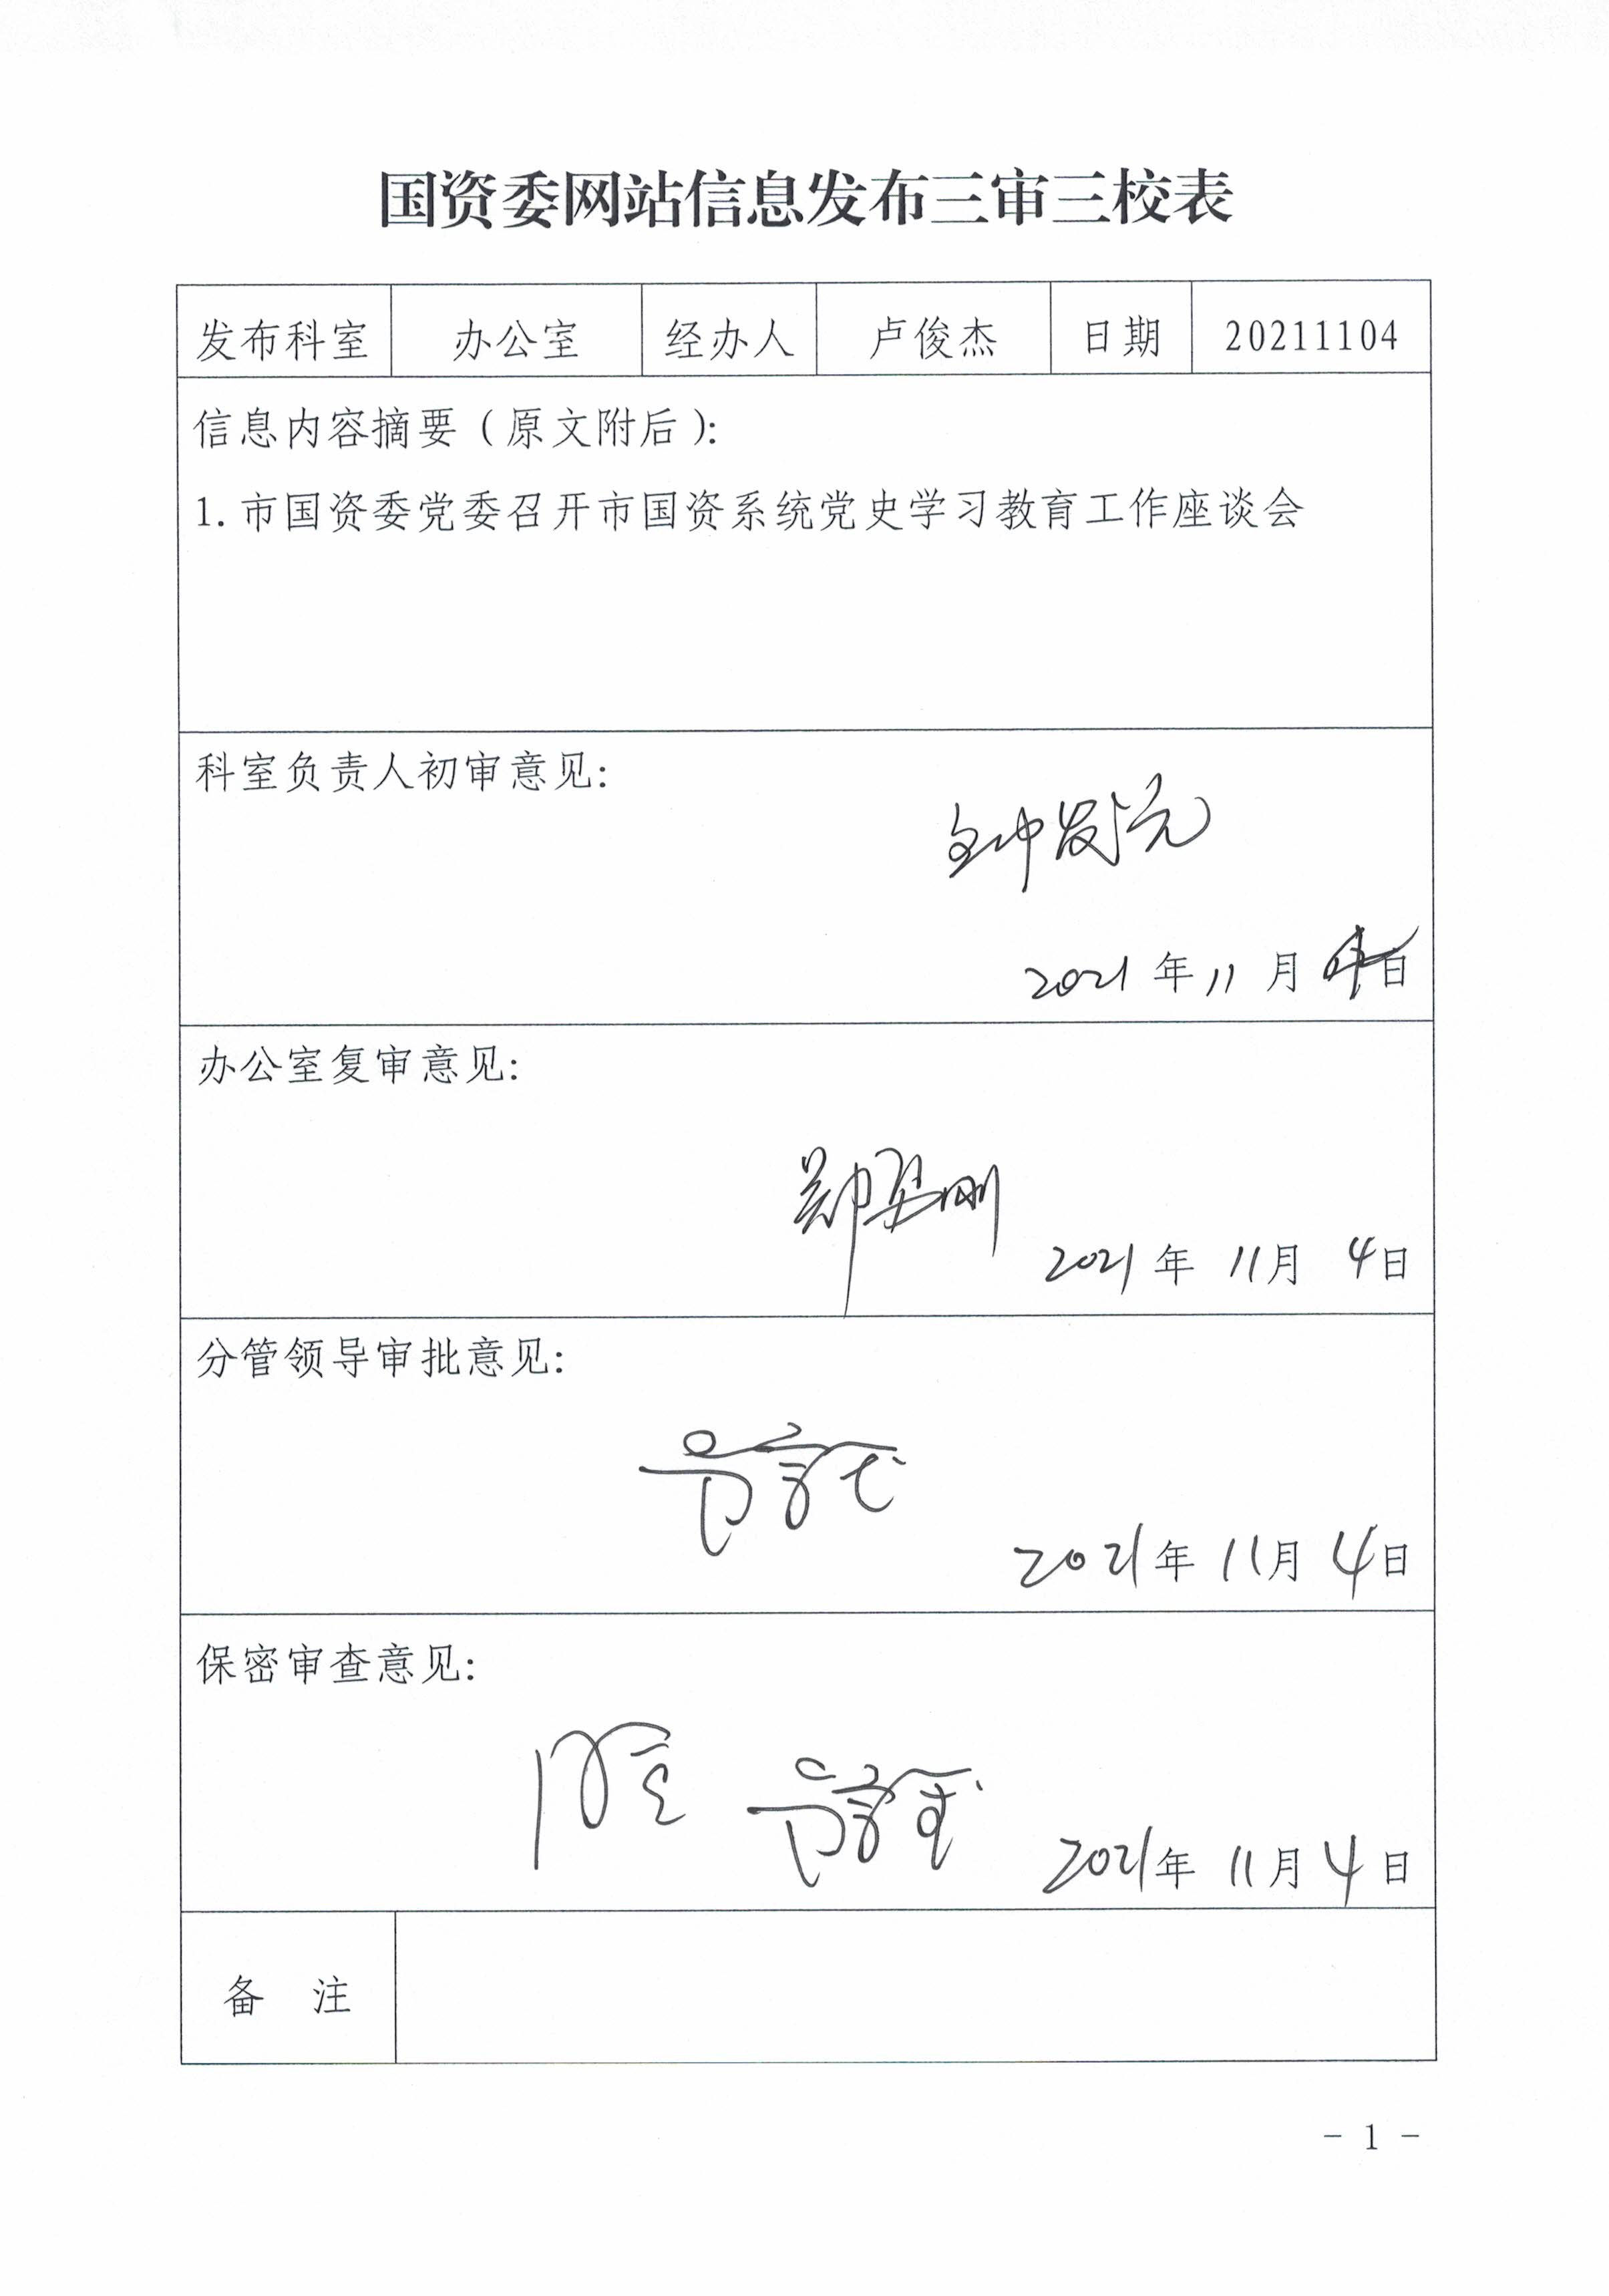 国资委网站信息发布三审三校表
发布科室 办公室 经办人 卢俊杰 日期 20211104
信息内容摘要（原文附后）：
1. 市国资委党委召开市国资系统党史学习教育工作座谈会
科室负责人初审意见：
钟发元
2021 年 11 月 4 日
办公室复审意见：
2021 年 11 月 4 日
分管领导审批意见：
2021 年 11 月 4 日
保密审查意见：
2021 年 11 月 4 日
备 注
- 1 -